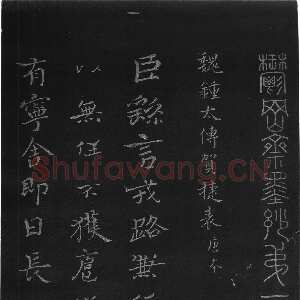 鬱岡齋墨妙弟一
魏鍾太傅賀捷表唐本
臣繇言戎路兼行
以無任不獲扈
有寧舍即日長
Shufawang.CN